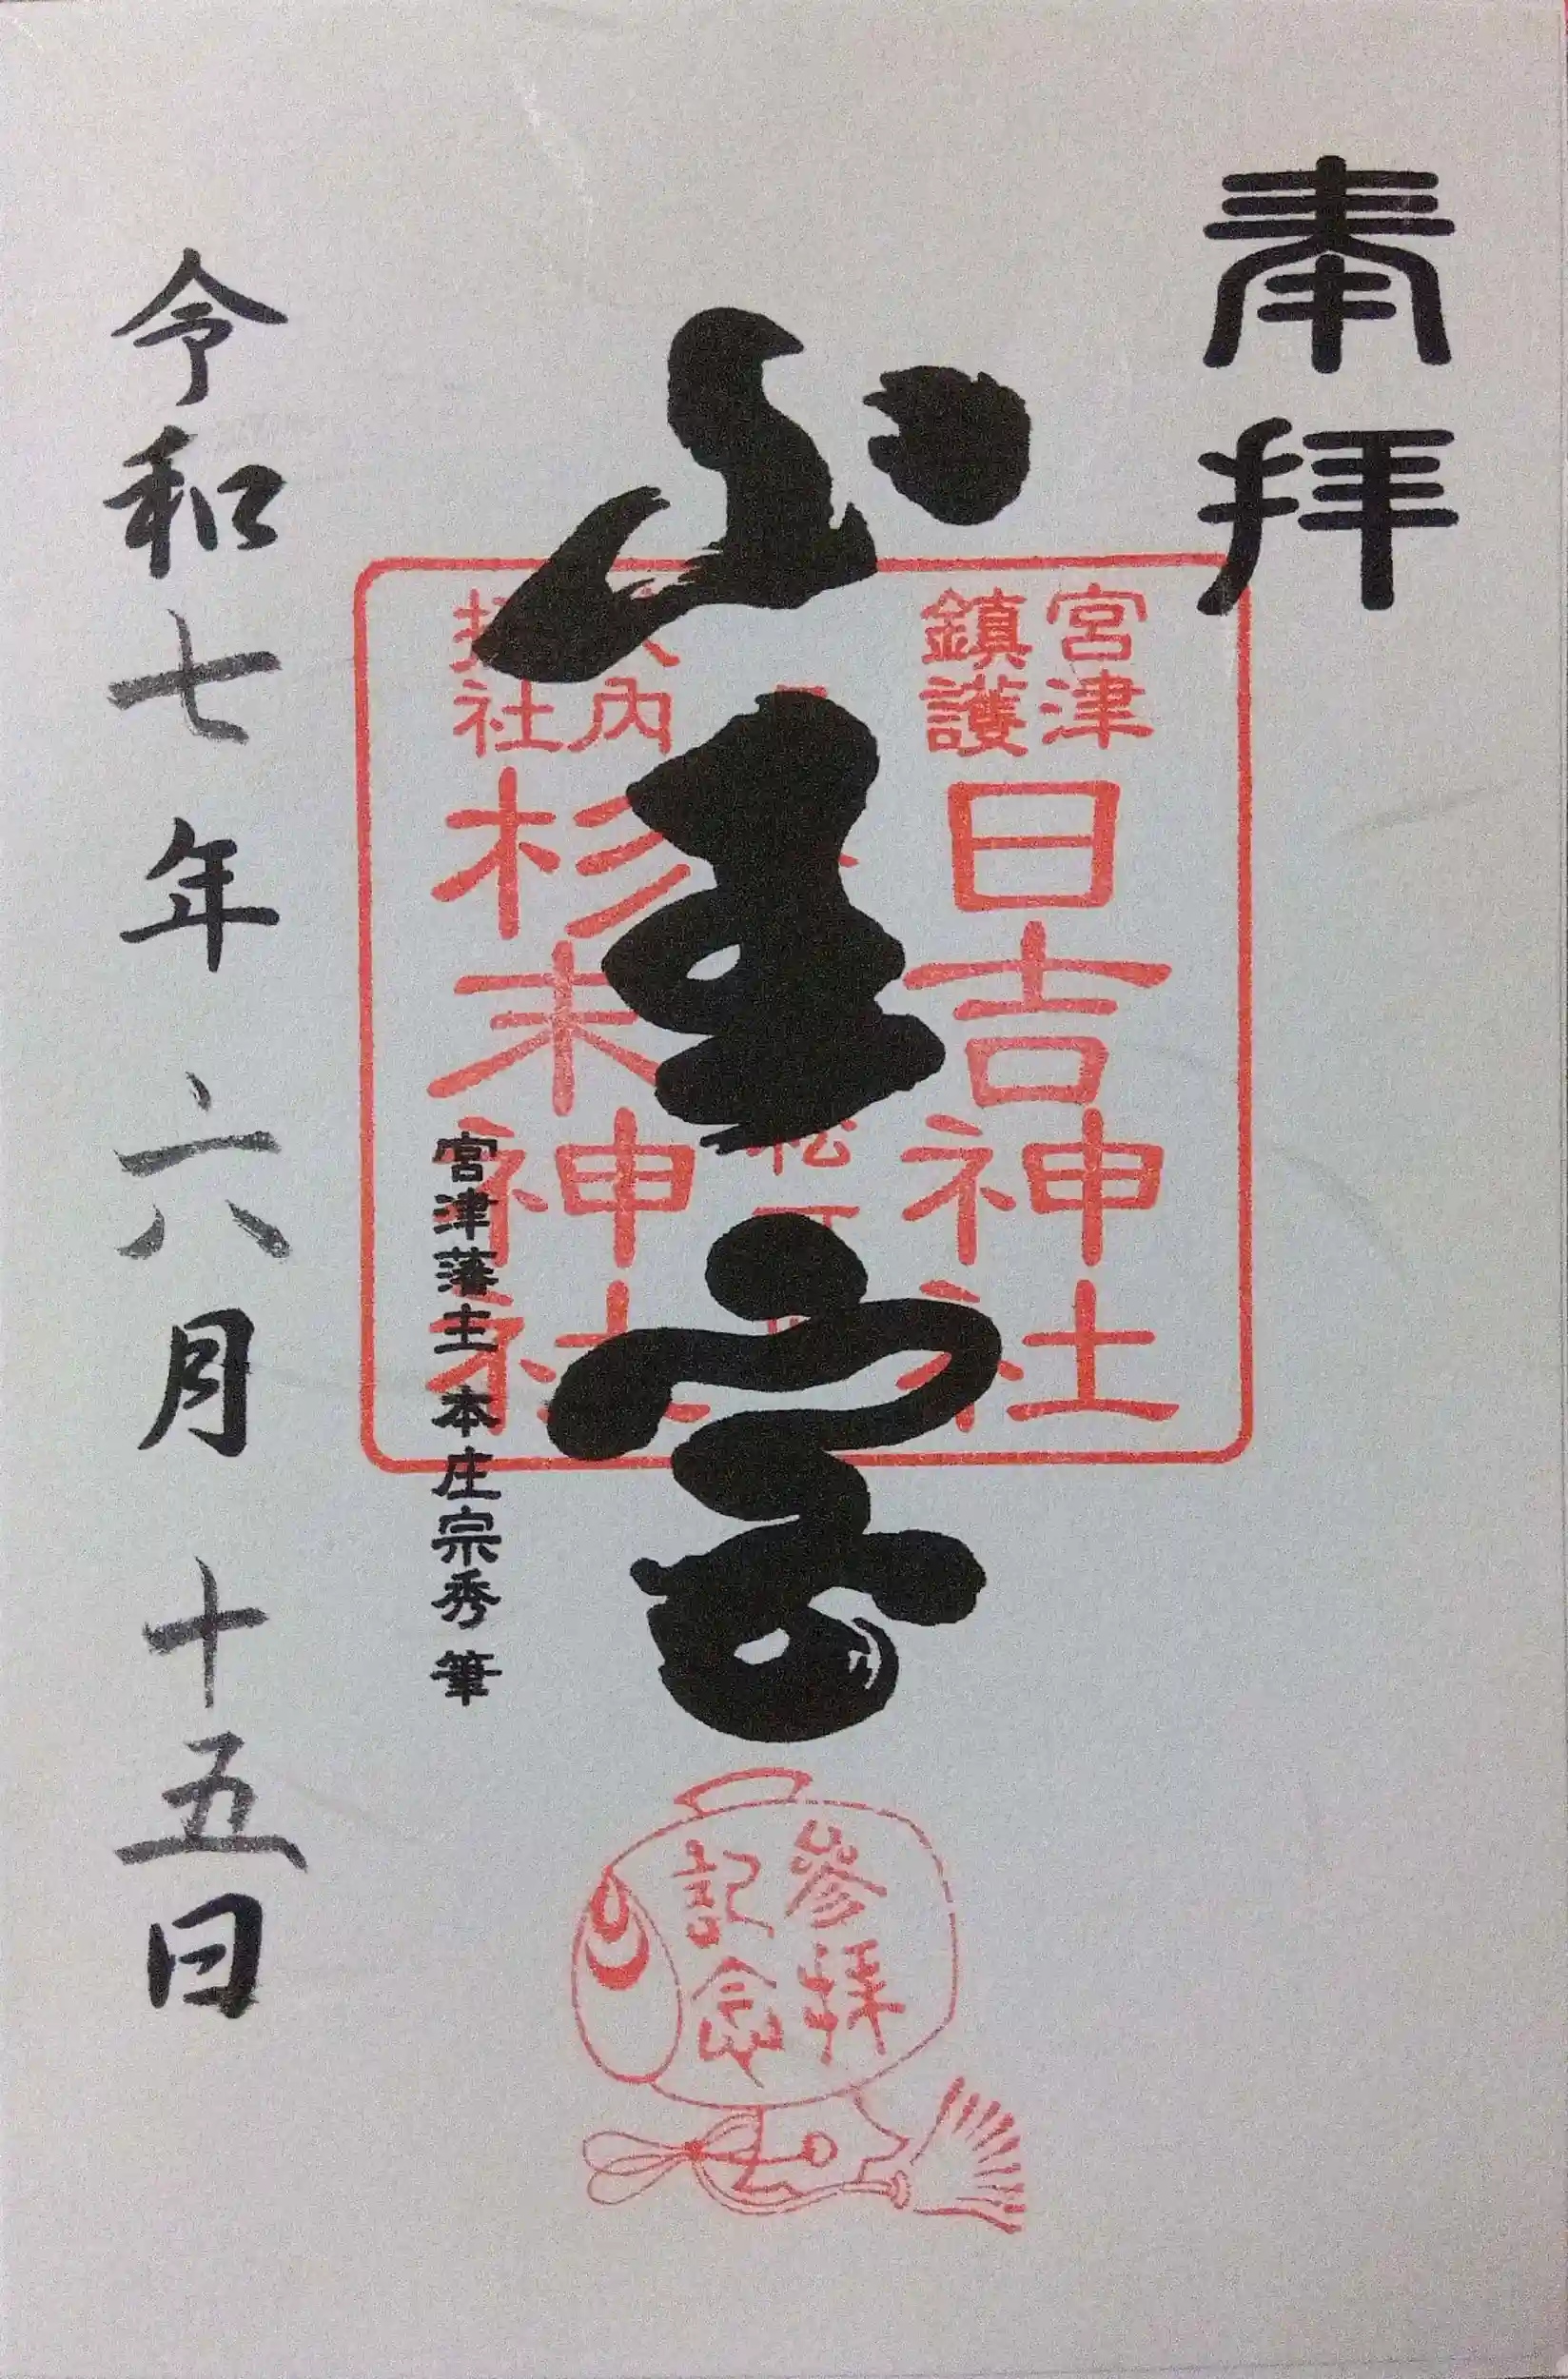 奉拝
宮津
鎮護
日吉神社
山王宮
内
社
杉末神社
宮津藩主 本庄宗秀 筆
令和七年六月十五日
參拝
記念